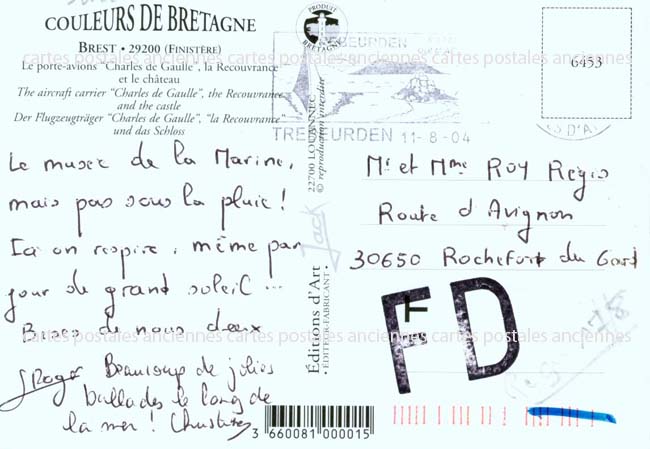 COULEURS DE BRETAGNE
BREST • 29200 (FINISTÈRE)
Le porte-avions "Charles de Gaulle", la Recouvrance
et le château
The aircraft carrier "Charles de Gaulle", the Recouvrance
and the castle
Der Flugzeugträger "Charles de Gaulle", "la Recouvrance"
und das Schloss
PRODUIT
BRETAGNE
TREBEURDEN 11-8-04
6453
cartes postales anciennes cartes postales anciennes cartes postales anciennes
Le musée de la Marine,
mais pas sous la pluie !
Ici on respire, même par
jour de grand soleil ...
Bises de nous deux
Roger Beaucoup de jolies
ballades le long de
la mer ! Christiane
22700 LOUANNEC
© reproduction interdite
Jack
Éditions d'Art
• ÉDITEUR-FABRICANT •
Mr et Mme ROY Régis
Route d'Avignon
30650 Rochefort du Gard
FD
cartes postales anciennes cartes postales anciennes cartes postales anciennes
3 660081 000015